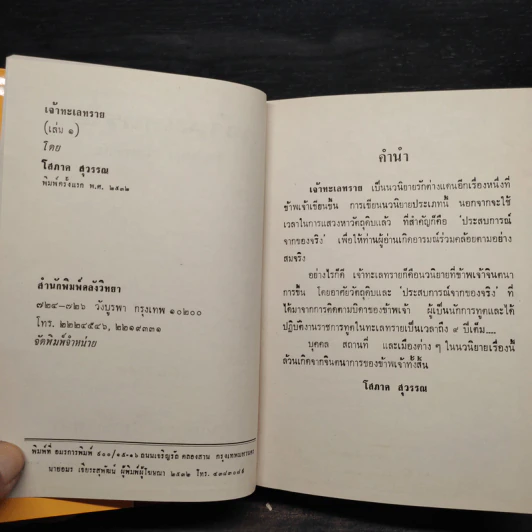 เจ้าทะเลทราย
(เล่ม ๑)
โดย
โสภาค สุวรรณ
พิมพ์ครั้งแรก พ.ศ. ๒๕๓๒
สำนักพิมพ์คลังวิทยา
๗๒๔-๗๒๖ วังบูรพา กรุงเทพ ๑๐๒๐๐
โทร. ๒๒๒๔๕๔๖, ๒๒๑๙๓๓๑
จัดพิมพ์จำหน่าย
พิมพ์ที่ อมรการพิมพ์ ๕๐๑/๑๕-๑๖ ถนนเจริญรัถ คลองสาน กรุงเทพมหานคร
นายอมร เขียวระสุพัฒน์ ผู้พิมพ์ผู้โฆษณา ๒๕๓๒ โทร.
คำนำ
เจ้าทะเลทราย เป็นนวนิยายรักต่างแดนอีกเรื่องหนึ่งที่
ข้าพเจ้าเขียนขึ้น การเขียนนวนิยายประเภทนี้ นอกจากจะใช้
เวลาในการแสวงหาวัตถุดิบแล้ว ที่สำคัญก็คือ 'ประสบการณ์
จากของจริง' เพื่อให้ท่านผู้อ่านเกิดอารมณ์ร่วมคล้อยตามอย่าง
สมจริง
อย่างไรก็ดี เจ้าทะเลทรายก็คือนวนิยายที่ข้าพเจ้าจินตนา
การขึ้น โดยอาศัยวัตถุดิบและ 'ประสบการณ์จากของจริง' ที่
ได้มาจากการติดตามบิดาของข้าพเจ้า ผู้เป็นนักการทูตและได้
ปฏิบัติงานราชการทูตในทะเลทรายเป็นเวลาถึง ๙ ปีเต็ม....
บุคคล สถานที่ และเมืองต่าง ๆ ในนวนิยายเรื่องนี้
ล้วนเกิดจากจินตนาการของข้าพเจ้าทั้งสิ้น
โสภาค สุวรรณ